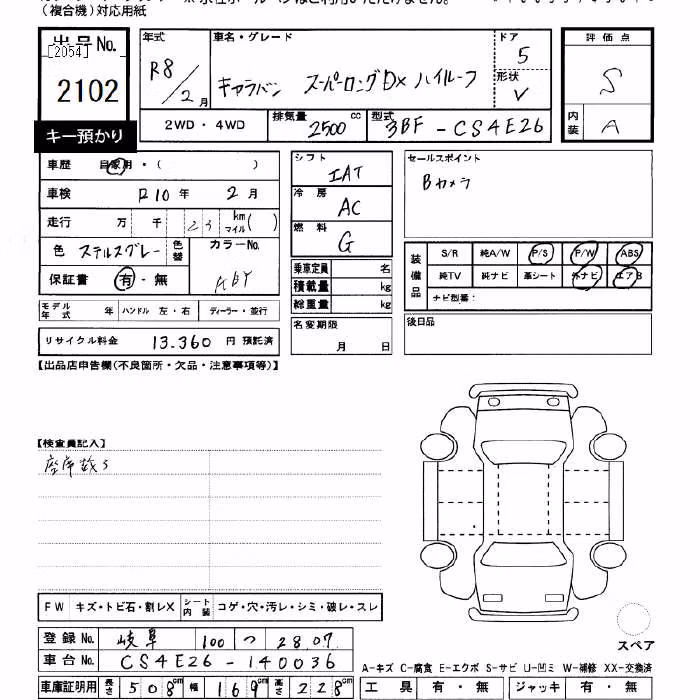 (複合機)対応用紙
出品No. [2054] 2102
キー預かり
年式 R8/2月
車名・グレード キャラバン スーパーロングDX ハイルーフ
ドア 5
形状 V
2WD・4WD 排気量 2500cc 型式 3BF-CS4E26
評価点 S
内装 A
車歴 自家用・( )
車検 R10年 2月
走行 万 千 23 km マイル( )
色 ステルスグレー 色替 カラーNo. KBY
保証書 有・無
モデル年式 年 ハンドル 左・右 ディーラー・並行
リサイクル料金 13,360 円 預託済
シフト IAT
冷房 AC
燃料 G
乗車定員 名
積載量 kg
総重量 kg
名変期限 月 日
セールスポイント
Bカメラ
装備品 S/R 純A/W P/S P/W ABS
純TV 純ナビ 革シート 外ナビ エアB
ナビ型番:
後日品
【出品店申告欄(不良箇所・欠品・注意事項等)】
【検査員記入】
座席数5
FW キズ・トビ石・割レX シート内装 コゲ・穴・汚レ・シミ・破レ・スレ
登録No. 岐阜 100 つ 28.07
車台No. CS4E26-140036
車庫証明用 長さ 508cm 幅 169cm 高さ 228cm
スペア
A-キズ C-腐食 E-エクボ S-サビ U-凹ミ W-補修 XX-交換済
工具 有・無 ジャッキ 有・無